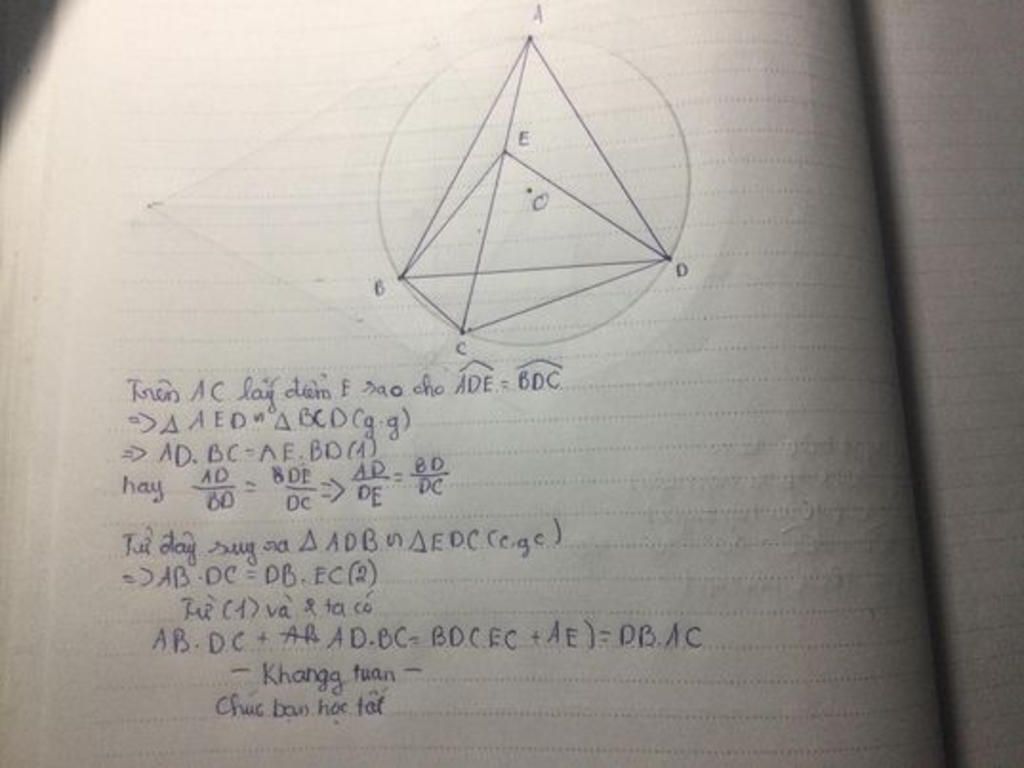 A
E
O
B
D
C
Trên AC lấy điểm E sao cho ADE = BDC
=> Δ AED ∽ Δ BCD (g.g)
=> AD. BC = AE. BD (1)
hay AD/BD = DE/DC => AD/DE = BD/DC
Từ đây suy ra Δ ADB ∽ Δ EDC (c.g.c)
=> AB. DC = DB. EC (2)
Từ (1) và 2 ta có
AB. DC + AD. BC = BD( EC + AE) = DB. AC
— Khangg tuan —
Chúc bạn học tốt